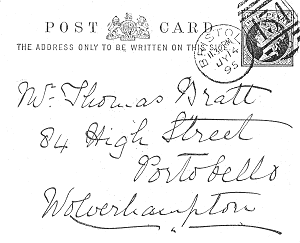 POST CARD
THE ADDRESS ONLY TO BE WRITTEN ON THIS SIDE
BRISTOL
JY 4
95
Mr. Thomas Bratt
84 High Street
Portobello
Wolverhampton